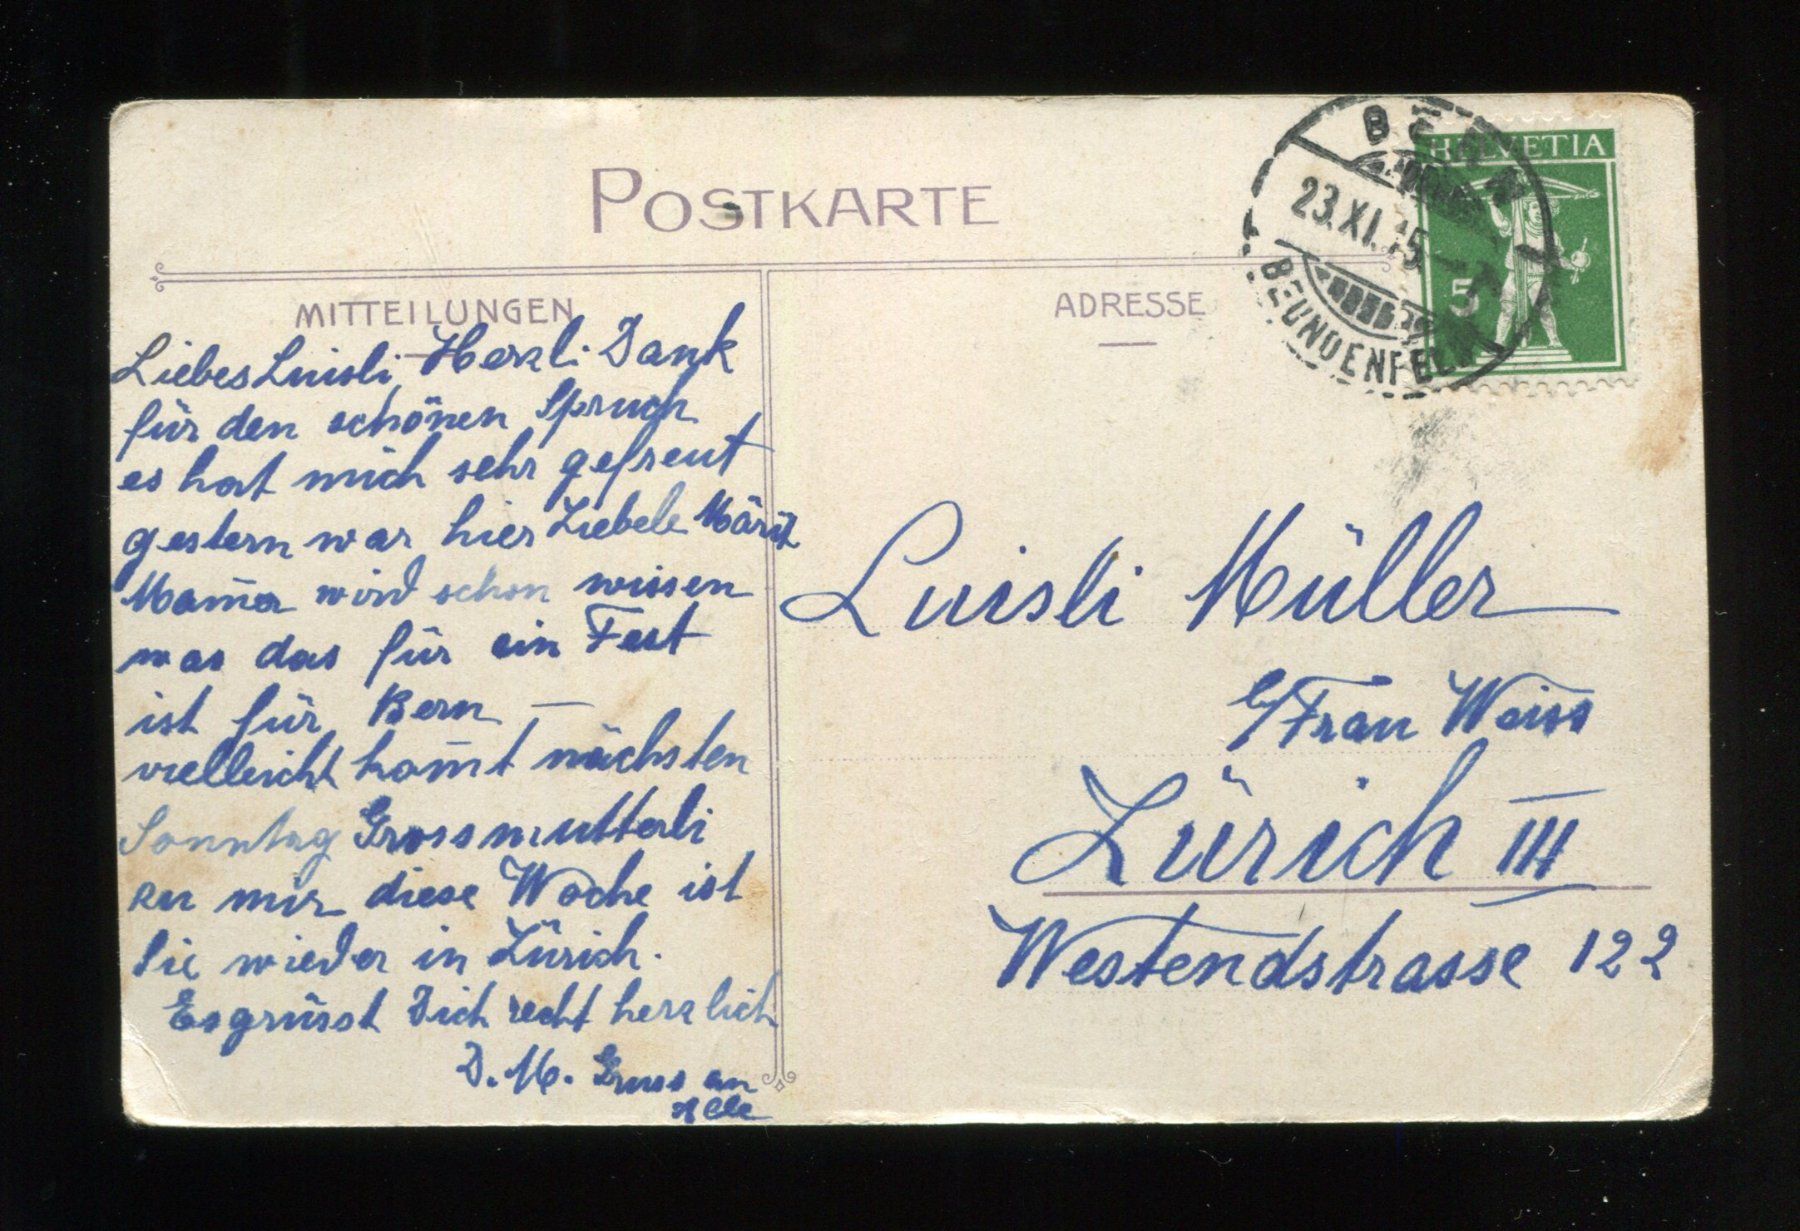 POSTKARTE
MITTEILUNGEN
Liebes Luisli, Herzli. Dank
für den schönen Spruch
es hat mich sehr gefreut
gestern war hier Ziebele Märit
Mam̄a wird schon wissen
was das für ein Fest
ist für Bern —
vielleicht kom̄t nächsten
Sonntag Grossmutterli
zu mir diese Woche ist
Sie wieder in Zürich.
Es grüsst Dich recht herzlich
D. M. Gruss an
Alle
ADRESSE
BERN
23.XI.15
BEUNDENFELD
HELVETIA
5
Luisli Müller
c/ Frau Weiss
Zürich III
Westendstrasse 122